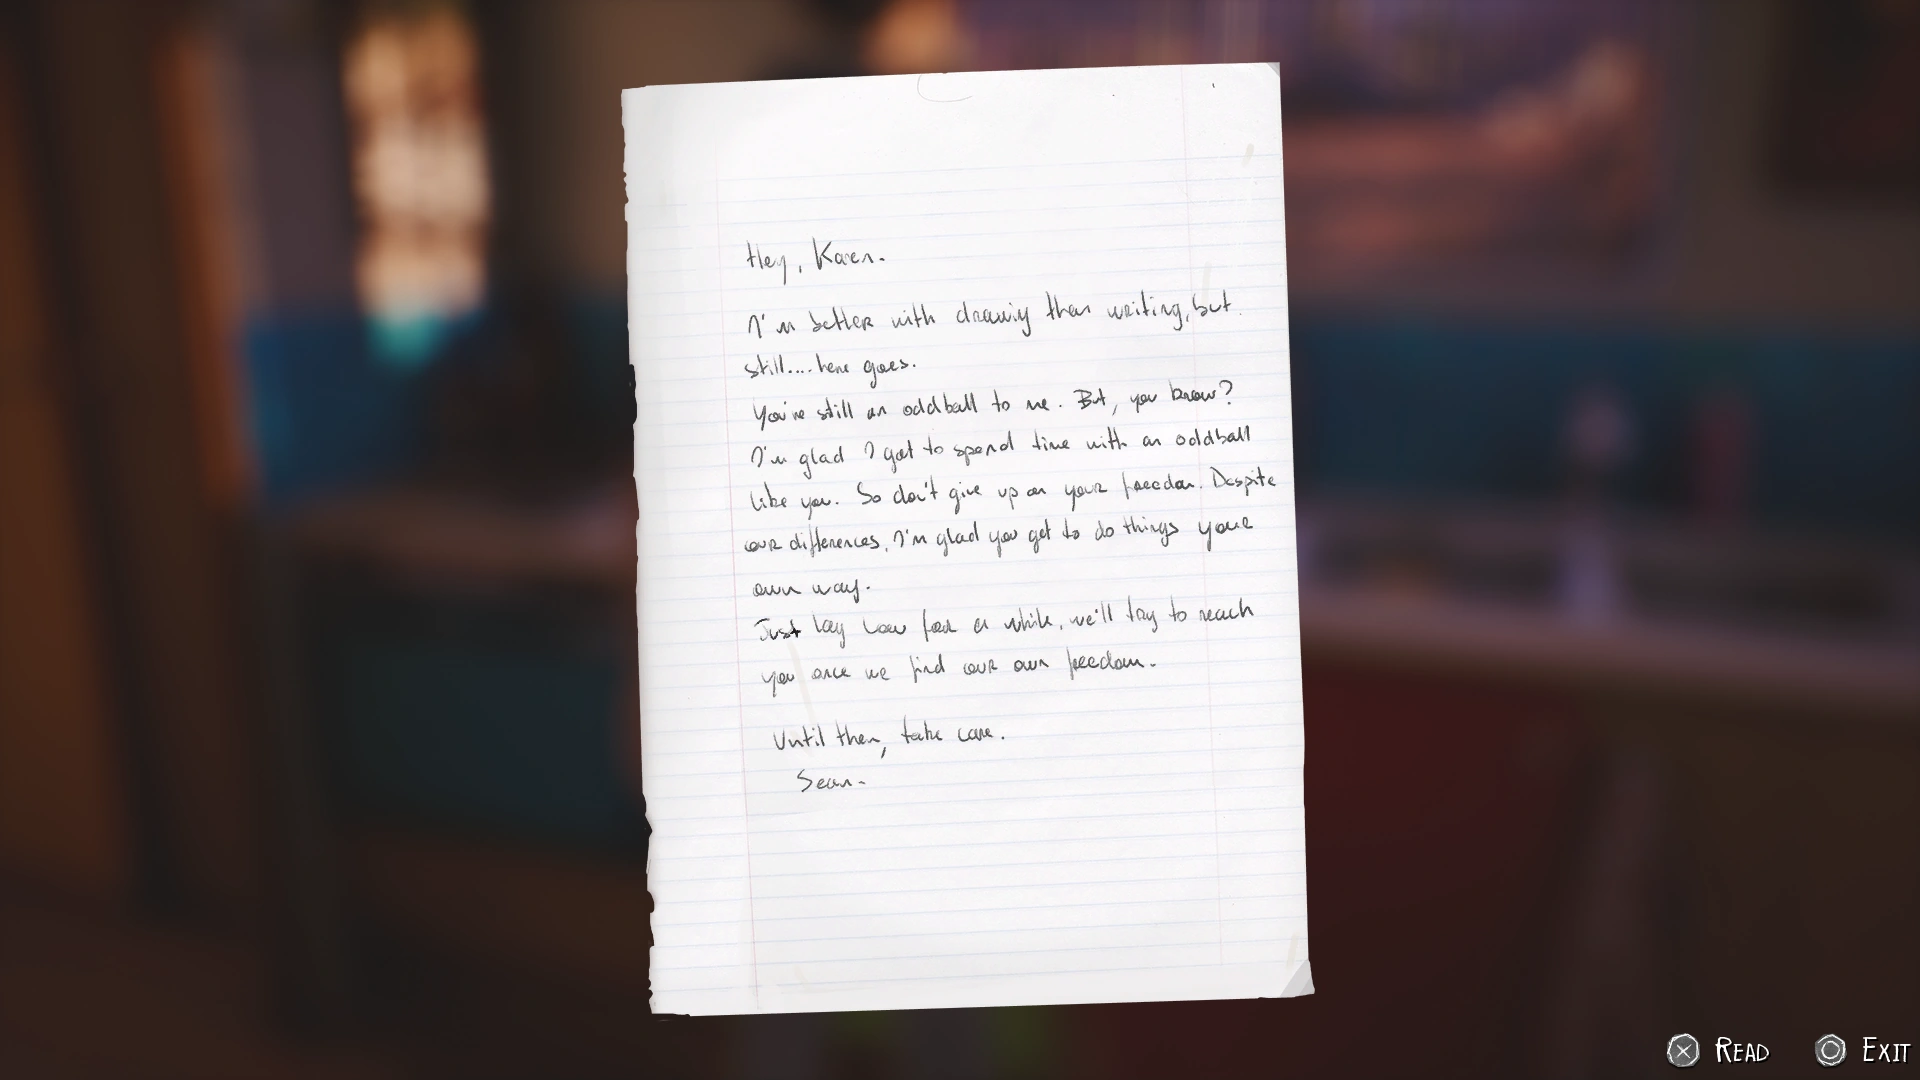 Hey, Karen.
I'm better with drawing than writing, but
still.... here goes.
You're still an oddball to me. But, you know?
I'm glad I got to spend time with an oddball
like you. So don't give up on your freedom. Despite
our differences, I'm glad you get to do things your
own way.
Just lay low for a while, we'll try to reach
you once we find our own freedom.
Until then, take care.
Sean.
READ EXIT